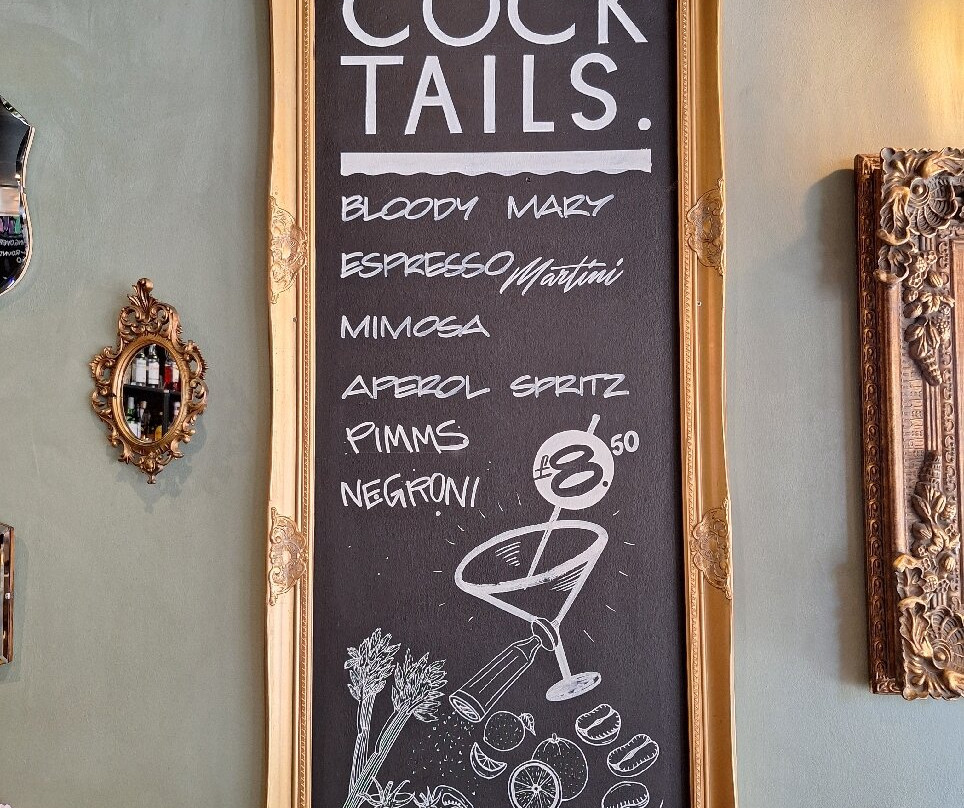 COCK
TAILS.
BLOODY MARY
ESPRESSO Martini
MIMOSA
APEROL SPRITZ
PIMMS
NEGRONI
£8.50